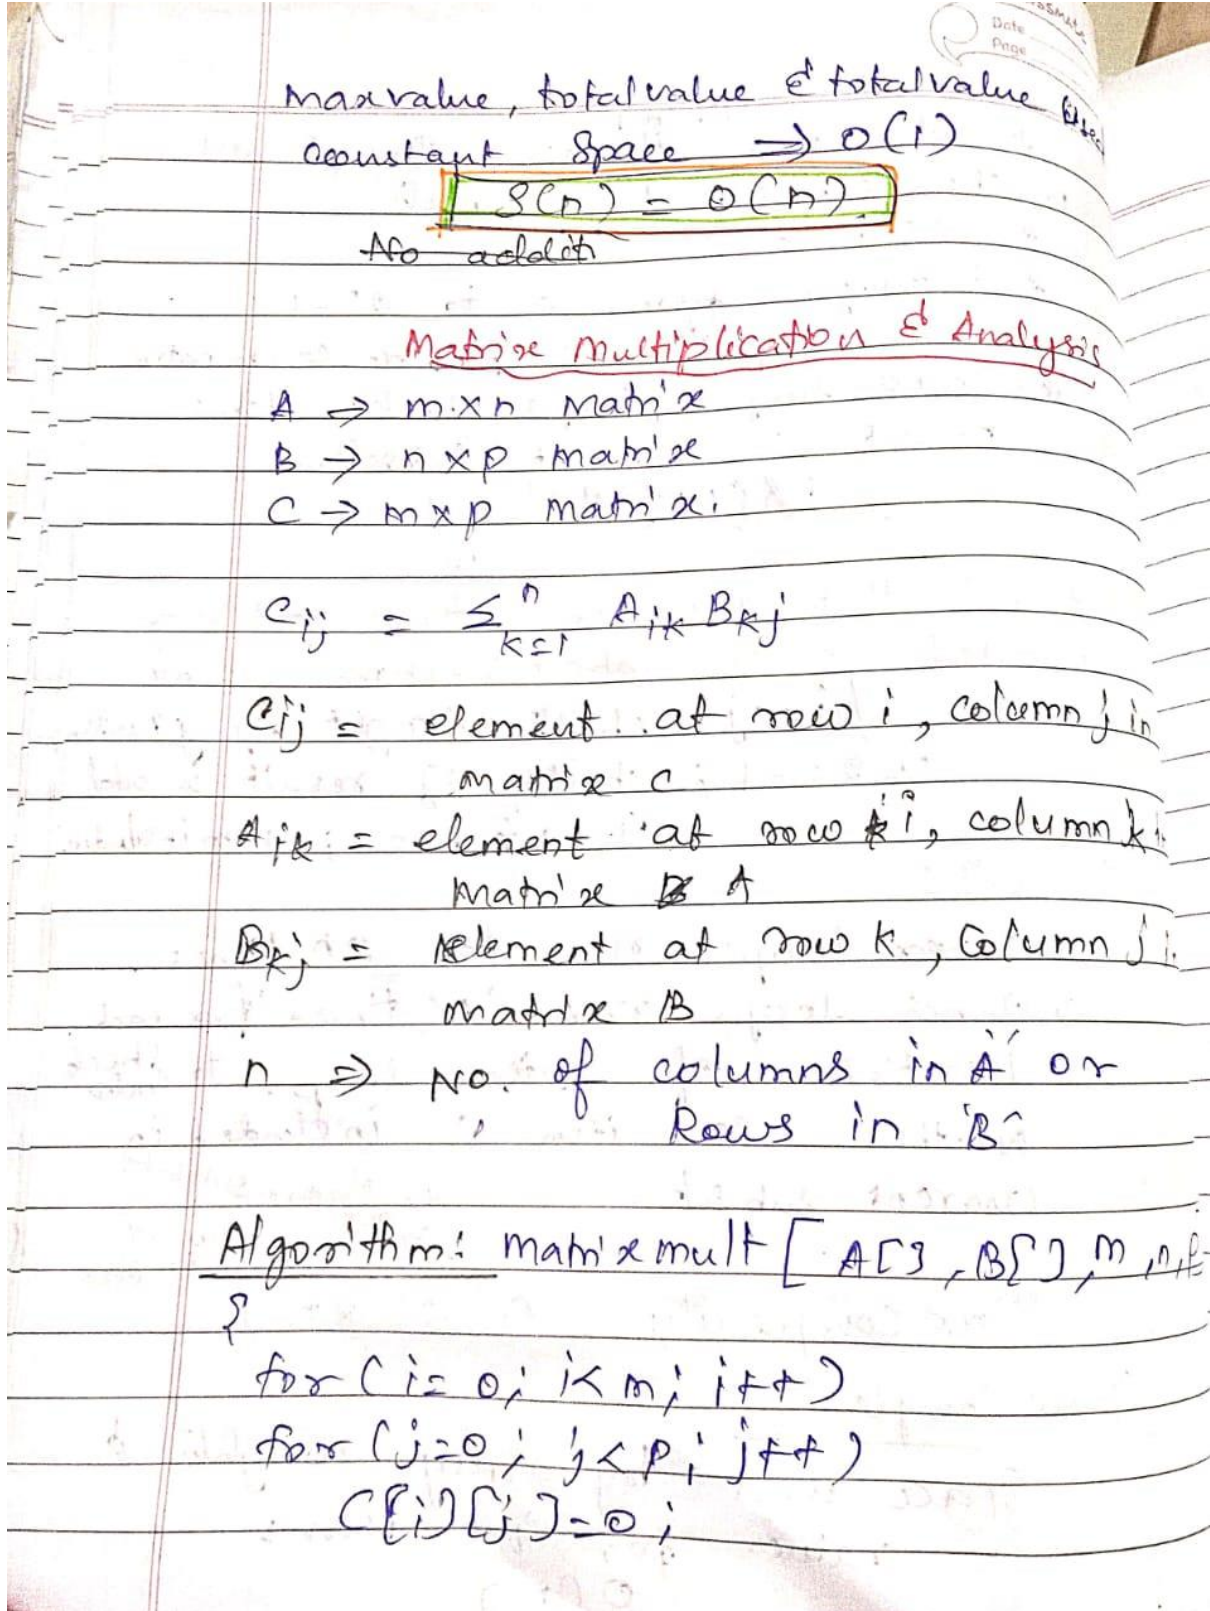 Date
Page
maxvalue, total value & total value used
constant space ⇒ O(1)
S(n) = O(n).
No addit
Matrix Multiplication & Analysis
A → m×n matrix
B → n×p matrix
C → m×p matrix.
Cij = Σ^n_{k=1} Aik Bkj
Cij = element at row i, column j in
matrix C
Aik = element at row i, column k
matrix A
Bkj = element at row k, Column j
matrix B
n ⇒ No. of columns in 'A' or
Rows in 'B'
Algorithm: matrixmult [ A[], B[], m, n, p
{
for (i=0; i<m; i++)
for (j=0; j<p; j++)
C[i][j]=0;